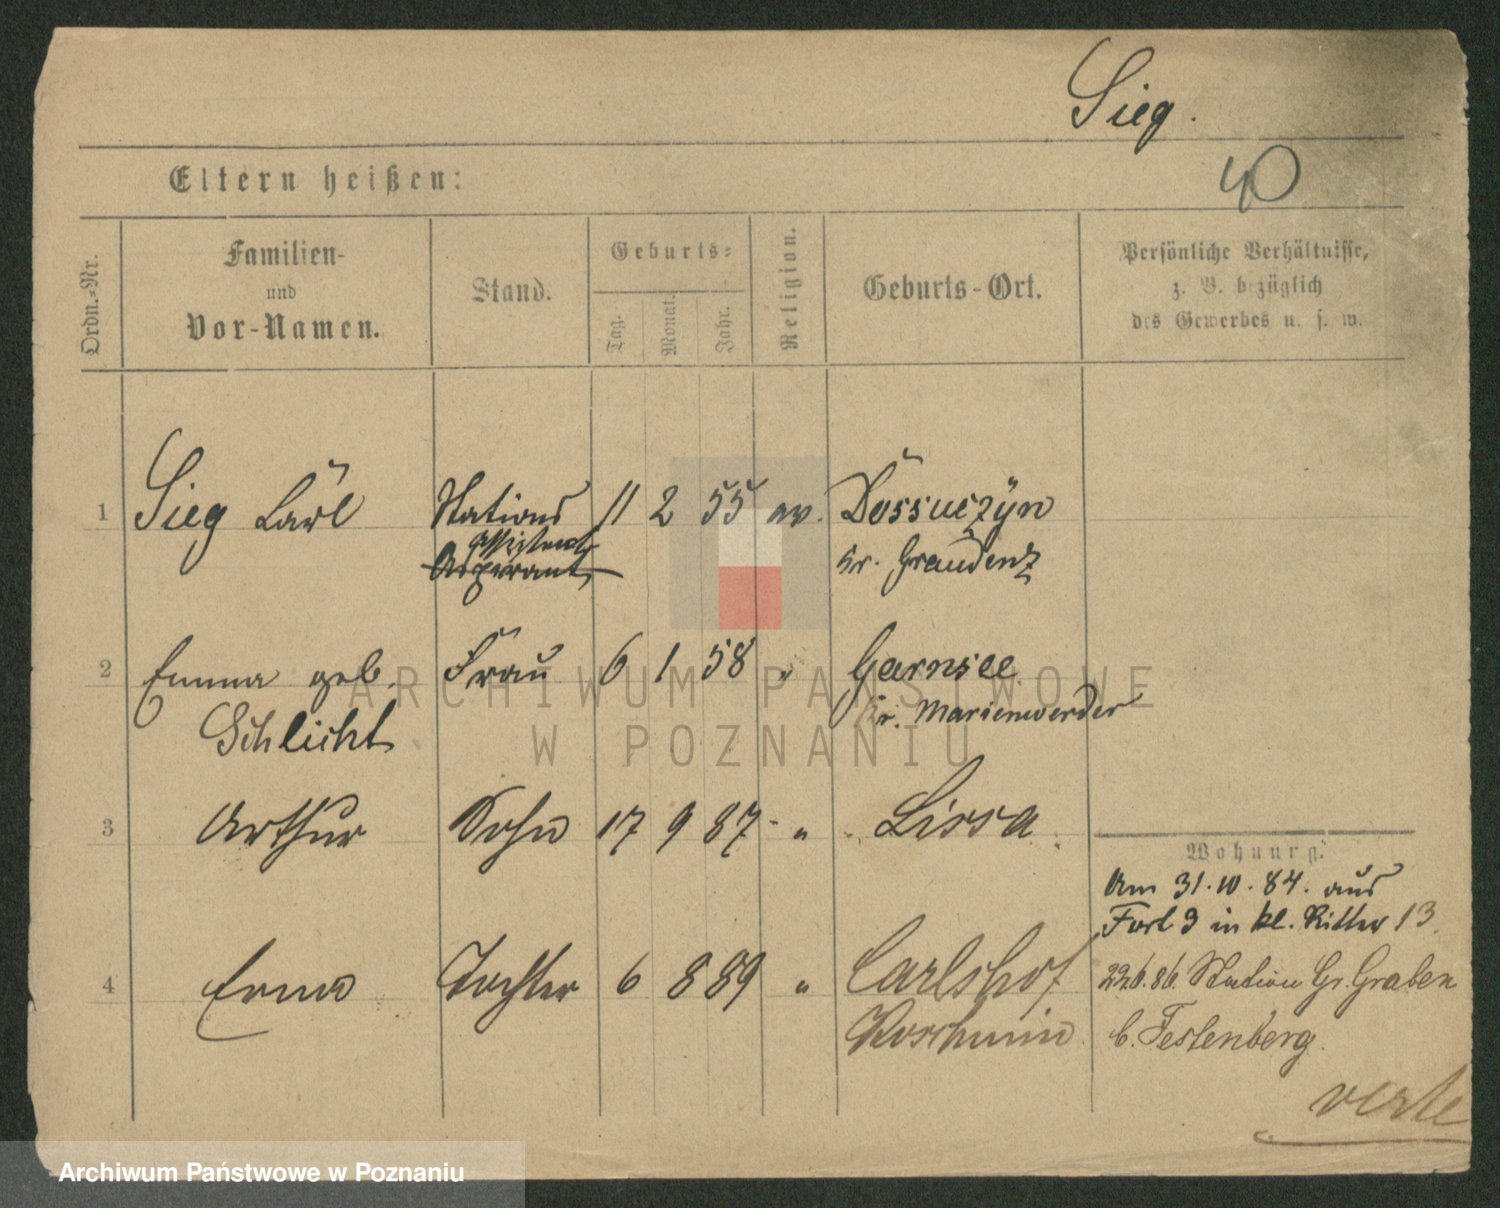 Sieg.
40
Eltern heißen:
Ordn.-Nr.
Familien-
und
Vor-Namen.
Stand.
Geburts-
Tag.
Monat.
Jahr.
Religion.
Geburts-Ort.
Persönliche Verhältnisse,
z. B. bezüglich
des Gewerbes u. s. w.
1 Sieg Carl Stations 11 2 55 ev. Dossoczyn
Assistent
Aspirant
Kr. Graudenz
2 Emma geb. Frau 6 1 58 " Garnsee
Schlicht
Kr. Marienwerder
3 Arthur Sohn 17 9 87 " Lissa
Wohnung.
Am 31.10.84. aus
Fort 3 in kl. Ritter 13.
4 Erna Tochter 6 8 89 " Carlshof
Koschmin
22.6.86. Station Gr. Graben
b. Festenberg.
verte
ARCHIWUM PAŃSTWOWE
W POZNANIU
Archiwum Państwowe w Poznaniu